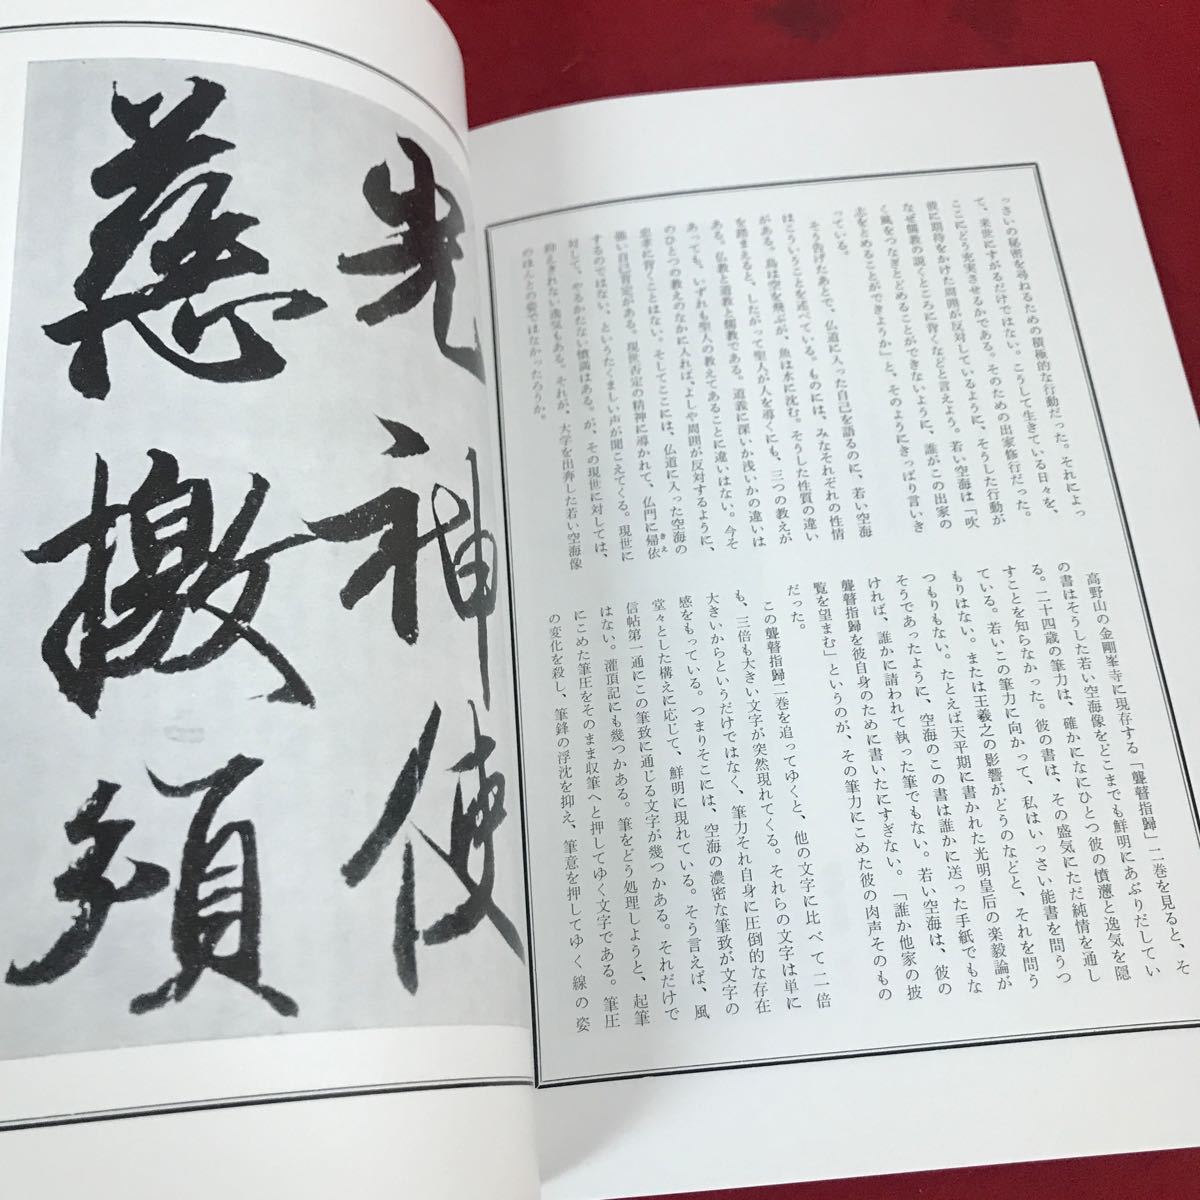 っさいの秘密を尋ねるための積極的な行動だった。それによっ
て、来世にすがるだけではない。こうして生きている日々を、
ここにどう充実させるかである。そのための出家修行だった。
彼に期待をかけた周囲が反対しているように、そうした行動が
なぜ儒教の説くところに背くなどと言えよう。若い空海は「吹
く風をつなぎとどめることができないように、誰がこの出家の
志をとめることができようか」と、そのようにきっぱり言いき
っている。
そう告げたあとで、仏道に入った自己を語るのに、若い空海
はこういうことを述べている。ものには、みなそれぞれの性情
がある。鳥は空を飛ぶが、魚は水に沈む。そうした性質の違い
を踏まえると、したがって聖人が人を導くにも、三つの教えが
ある。仏教と道教と儒教である。道義に深いか浅いかの違いは
あっても、いずれも聖人の教えであることに違いはない。今そ
のひとつの教えのなかに入れば、よしや周囲が反対するように、
忠孝に背くことはない。そしてここには、仏道に入った空海の
強い自己肯定がある。現世否定の精神に導かれて、仏門に帰依
きえ
するのではない、というたくましい声が聞こえてくる。現世に
対して、やるかたない憤満はある。が、その現世に対しては、
抑えきれない逸気もある。それが、大学を出奔した若い空海像
のほんとの姿ではなかったろうか。
高野山の金剛峯寺に現存する「聾瞽指歸」二巻を見ると、そ
の書はそうした若い空海像をどこまでも鮮明にあぶりだしてい
る。二十四歳の筆力は、確かになにひとつ彼の憤懣と逸気を隠
すことを知らなかった。彼の書は、その盛気にただ純情を通し
ている。若いこの筆力に向かって、私はいっさい能書を問うつ
もりはない。または王羲之の影響がどうのなどと、それを問う
つもりもない。たとえば天平期に書かれた光明皇后の楽毅論が
そうであったように、空海のこの書は誰かに送った手紙でもな
ければ、誰かに請われて執った筆でもない。若い空海は、彼の
聾瞽指歸を彼自身のために書いたにすぎない。「誰か他家の披
覧を望まむ」というのが、その筆力にこめた彼の肉声そのもの
だった。
この聾瞽指歸二巻を追ってゆくと、他の文字に比べて二倍
も、三倍も大きい文字が突然現れてくる。それらの文字は単に
大きいからというだけではなく、筆力それ自身に圧倒的な存在
感をもっている。つまりそこには、空海の濃密な筆致が文字の
堂々とした構えに応じて、鮮明に現れている。そう言えば、風
信帖第一通にこの筆致に通じる文字が幾つかある。それだけで
はない。灌頂記にも幾つかある。筆をどう処理しようと、起筆
にこめた筆圧をそのまま収筆へと押してゆく文字である。筆圧
の変化を殺し、筆鋒の浮沈を抑え、筆意を押してゆく線の姿
神使
慈檄